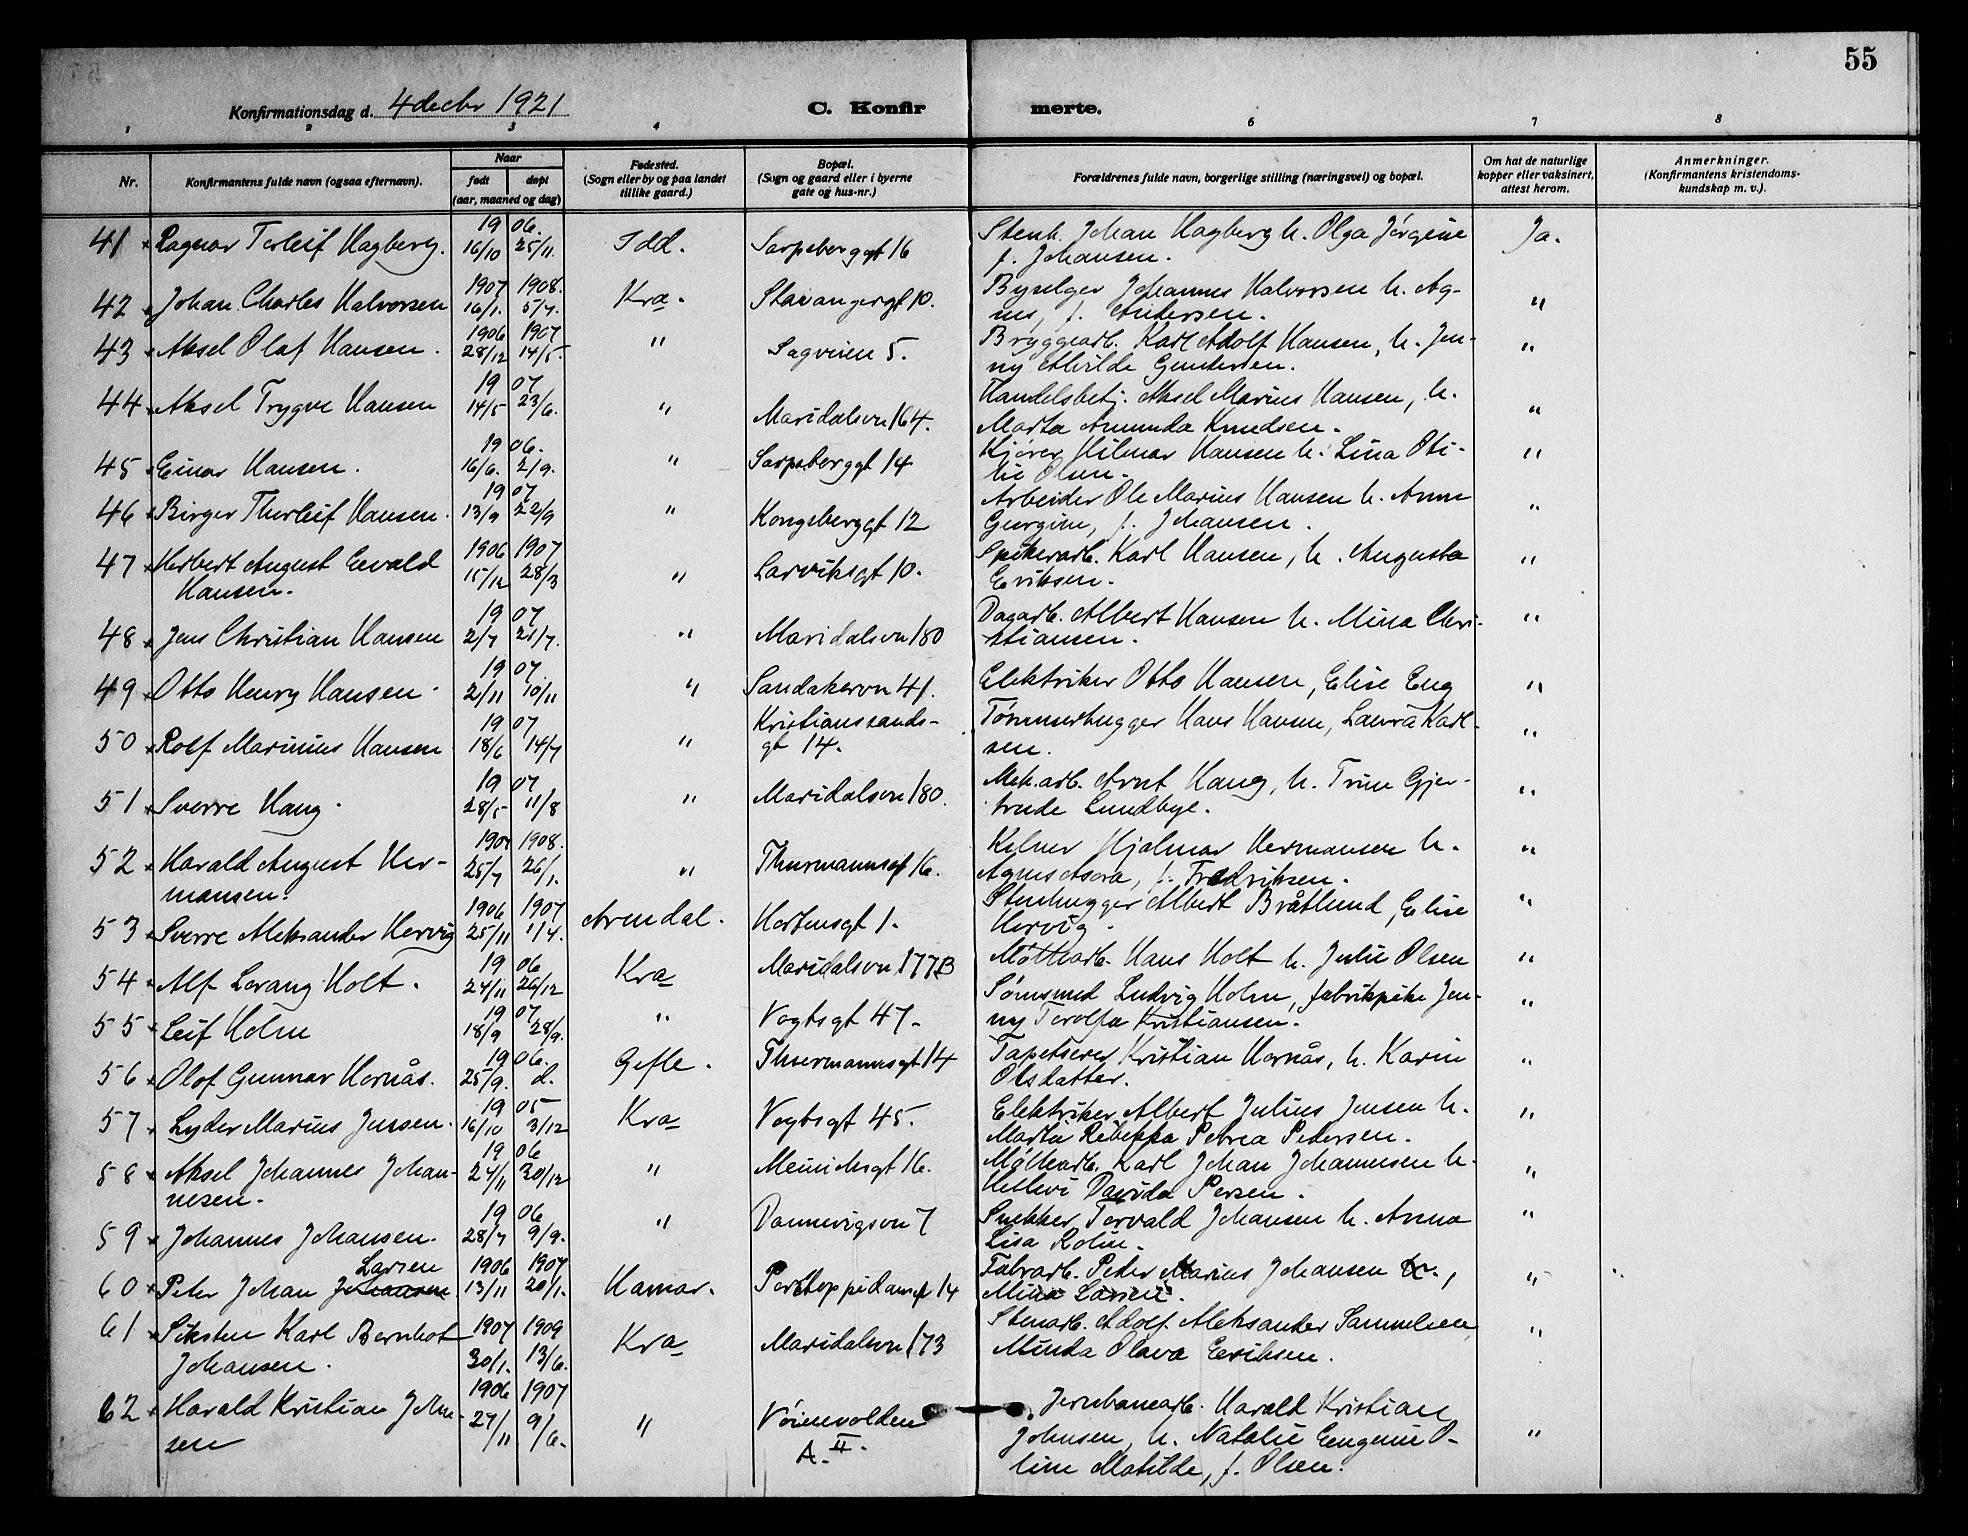 55
Konfirmationsdag d. 4 decbr 1921
C. Konfir merte.
1 2 3 4 6 7 8
Nr.
Konfirmantens fulde navn (ogsaa efternavn).
Naar
født døpt
(aar, maaned og dag)
Fødested.
(Sogn eller by og paa landet
tillike gaard.)
Bopæl.
(Sogn og gaard eller i byerne
gate og hus-nr.)
Forældrenes fulde navn, borgerlige stilling (næringsvei) og bopæl.
Om hat de naturlige
kopper eller vaksinert,
attest herom.
Anmerkninger.
(Konfirmantens kristendoms-
kundskap m. v.).
19 06.
41 Ragnar Torleif Hagberg. 16/10 25/11. Idd. Sarpsborggt 16 Stenh. Johan Hagberg h. Olga Jørgine Ja.
f. Johansen.
1907 1908.
42 Johan Charles Halvorsen 16/1. 5/7. Kra. Stavangergt 10. Byselger Johannes Halvorsen h. Ag- "
nes, f. Andersen.
1906 1907
43 Aksel Olaf Hansen. 28/12 14/5. " Sagveien 5. Bryggearb. Karl Adolf Hansen, h. Jen- "
ny Alvilde Gundersen.
19 07
44 Aksel Trygve Hansen 14/5 23/6. " Maridalsvn 164. Handelsbetj. Aksel Marius Hansen, h. "
Marta Amunda Knudsen.
19 06.
45 Einar Hansen. 16/6. 2/9. " Sarpsborggt 14 Kjører Hilmar Hansen h. Lina Oti- "
lie Olsen.
19 07
46 Birger Thorleif Hansen. 13/9 22/9 " Kongsberggt 12 Arbeider Ole Marius Hansen h. Anna "
Georgine, f. Johansen.
1906 1907
47 Herbert August Evald 15/12 28/3 " Larviksgt 10. Spikerarb. Karl Hansen, h. Augusta "
Hansen. Eriksen.
19 07
48 Jens Christian Hansen 2/7 21/7. " Maridalsvn 180 Dagarb. Albert Hansen h. Mina Chri- "
stiansen.
19 07
49 Otto Henry Hansen. 2/11 10/11 " Sandakervn 41. Elektriker Otto Hansen, Elise Eng "
19 07 Kristianssands- Tømmerhugger Hans Hansen, Laura Karl-
50 Rolf Marinius Hansen 18/6 14/7 " gt 14. sen. "
19 07
51 Sverre Haug. 28/5 11/8 " Maridalsvn 180. Mek.arb. Arnt Haug, h. Trine Gjer- "
trude Lundbye.
1907 1908.
52 Harald August Her- 25/7 26/1. " Thurmannsgt 16. Kelner Hjalmar Hermansen h. "
mansen. Agnes Asora, f. Fredriksen.
1906 1907
53 Sverre Aleksander Hervig 25/11 1/4. Arendal. Hortensgt 1. Stenhugger Albert Bråtlund, Elise "
Hervig.
19 06
54 Alf Lorang Holt. 24/11 26/12 Kra Maridalsvn 177B Møllearb. Hans Holt h. Julie Olsen "
19 07
55 Leif Holm 18/9 28/9. " Vogtsgt 47. Sømsmed Ludvig Holm, fabrikpike Jen- "
ny Torolfa Kristiansen.
19 06.
56 Olof Gunnar Hornås. 25/9. d. Gefle. Thurmannsgt 14 Tapetserer Kristian Hornås, h. Karin "
Olsdatter.
19 05
57 Lyder Marius Jensen. 16/10 3/12 Kra Vogtsgt 45. Elektriker Albert Julius Jensen h. "
Martie Rebekka Petrea Pedersen.
19 06
58 Aksel Johannes Johan- 24/11 30/12 " Meinichsgt 16. Møllearb. Karl Johan Johannesen h. "
nesen. Davida Persen.
19 06
59 Johannes Johansen. 28/7 9/9. " Dannevigsvn 7 Snekker Torvald Johansen h. Anna "
Lisa Rolin.
Larsen 1906 1907
60 Peter Johan Johansen. 13/11 20/1. Hamar. Pontoppidansgt 14 Fabrarb. Peder Marius Johansen &., "
Mina Larsen.
1907 1909
61 Siksten Karl Bernhot 30/1. 13/6. Kra Maridalsvn 173 Stenarb. Adolf Aleksander Samuelsen "
Johansen. Minda Olava Eriksen.
1906 1907
62 Harald Kristian John- 27/11 9/6. " Vøienvolden Jernbanearb. Harald Kristian
sen A. II. Johnsen, h. Natalie Eugenie O- "
line Matilde, f. Olsen.